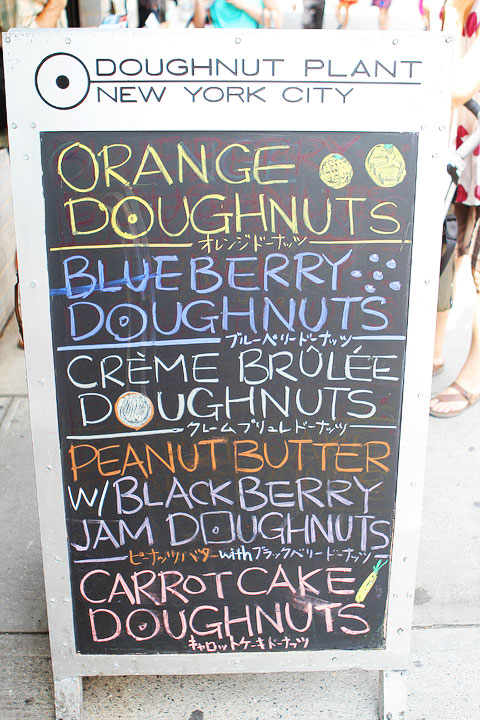 DOUGHNUT PLANT
NEW YORK CITY
ORANGE
DOUGHNUTS
オレンジドーナッツ
BLUEBERRY
DOUGHNUTS
ブルーベリードーナッツ
CRÈME BRÛLÉE
DOUGHNUTS
クレームブリュレドーナッツ
PEANUT BUTTER
W/BLACKBERRY
JAM DOUGHNUTS
ピーナッツバターwithブラックベリードーナッツ
CARROT CAKE
DOUGHNUTS
キャロットケーキドーナッツ